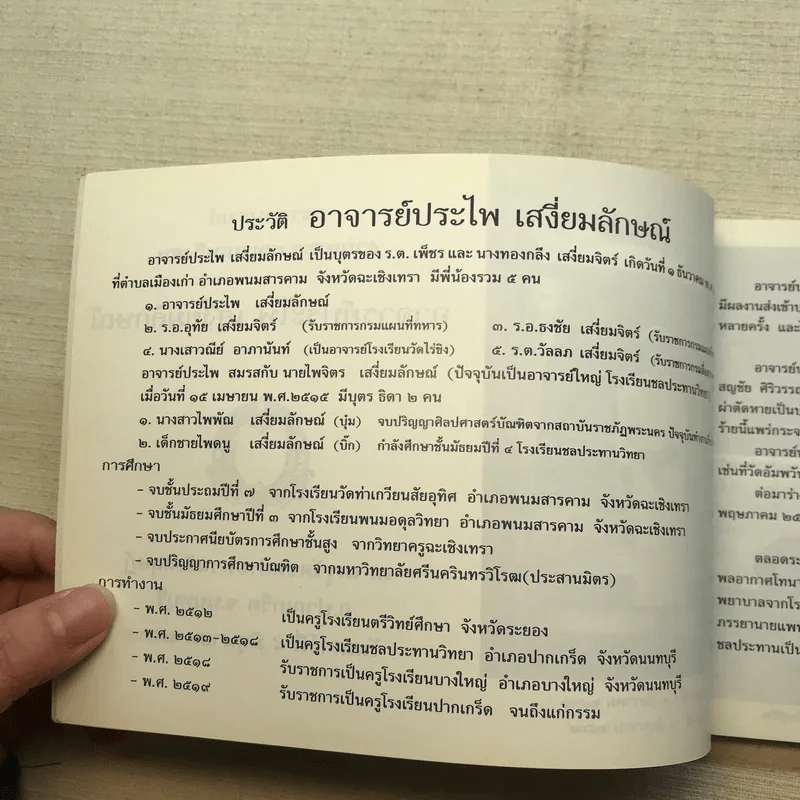 ประวัติ อาจารย์ประไพ เสงี่ยมลักษณ์
อาจารย์ประไพ เสงี่ยมลักษณ์ เป็นบุตรของ ร.ต. เพ็ชร และ นางทองกลึง เสงี่ยมจิตร์ เกิดวันที่ ๑ ธันวาคม
ที่ตำบลเมืองเก่า อำเภอพนมสารคาม จังหวัดฉะเชิงเทรา มีพี่น้องรวม ๕ คน
๑. อาจารย์ประไพ เสงี่ยมลักษณ์
๒. ร.อ.อุทัย เสงี่ยมจิตร์ (รับราชการกรมแผนที่ทหาร) ๓. ร.อ.ธงชัย เสงี่ยมจิตร์
๔. นางเสาวณีย์ อาภานันท์ (เป็นอาจารย์โรงเรียนวัดไร่ขิง) ๕. ร.ต.วัลลภ เสงี่ยมจิตร์
อาจารย์ประไพ สมรสกับ นายไพจิตร เสงี่ยมลักษณ์ (ปัจจุบันเป็นอาจารย์ใหญ่ โรงเรียนชลประทานวิทยา
เมื่อวันที่ ๑๕ เมษายน พ.ศ.๒๕๑๕ มีบุตร ธิดา ๒ คน
๑. นางสาวไพพัณ เสงี่ยมลักษณ์ (บุ๋ม) จบปริญญาศิลปศาสตร์บัณฑิตจากสถาบันราชภัฏพระนคร
๒. เด็กชายไพดนู เสงี่ยมลักษณ์ (บิ๊ก) กำลังศึกษาชั้นมัธยมปีที่ ๔ โรงเรียนชลประทานวิทยา
การศึกษา
- จบชั้นประถมปีที่ ๗ จากโรงเรียนวัดท่าเกวียนสัยอุทิศ อำเภอพนมสารคาม จังหวัดฉะเชิงเทรา
- จบชั้นมัธยมศึกษาปีที่ ๓ จากโรงเรียนพนมอดุลวิทยา อำเภอพนมสารคาม จังหวัดฉะเชิงเทรา
- จบประกาศนียบัตรการศึกษาชั้นสูง จากวิทยาครูฉะเชิงเทรา
- จบปริญญาการศึกษาบัณฑิต จากมหาวิทยาลัยศรีนครินทรวิโรฒ(ประสานมิตร)
การทำงาน
- พ.ศ. ๒๕๑๒ เป็นครูโรงเรียนตรีวิทย์ศึกษา จังหวัดระยอง
- พ.ศ. ๒๕๑๓-๒๕๑๘ เป็นครูโรงเรียนชลประทานวิทยา อำเภอปากเกร็ด จังหวัดนนทบุรี
- พ.ศ. ๒๕๑๘ รับราชการเป็นครูโรงเรียนบางใหญ่ อำเภอบางใหญ่ จังหวัดนนทบุรี
- พ.ศ. ๒๕๑๙ รับราชการเป็นครูโรงเรียนปากเกร็ด จนถึงแก่กรรม
มีผลงานส่งเข้า
หลายครั้ง และ
สญชัย ศิริวรรณ
ผ่าตัดหายเป็น
ร้ายนี้แพร่กระจ
อาจารย์
เช่นที่วัดอัมพวัน
ต่อมาร่าง
พฤษภาคม
ตลอดระ
พลอากาศโท
พยาบาลจากโร
ภรรยานายแพ
ชลประทานเป็น